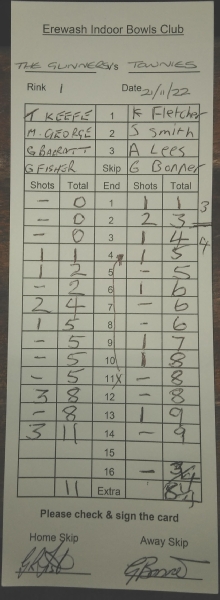 Erewash Indoor Bowls Club
THE GUNNERS v's TOWNIES
Rink 1 Date 21/11/22
T KEEFE 1 K Fletcher
M. GEORGE 2 S Smith
G BARRATT 3 A Lees
G FISHER Skip G Bonner
Shots Total End Shots Total
- 0 1 1 1
- 0 2 2 3 3
- 0 3 1 4 4
1 1 4 1 5
1 2 5 - 5
- 2 6 1 6
2 4 7 - 6
1 5 8 - 6
- 5 9 1 7
- 5 10 1 8
- 5 11 - 8
3 8 12 - 8
- 8 13 1 9
3 11 14 - 9
15
16 -
11 Extra
Please check & sign the card
Home Skip Away Skip